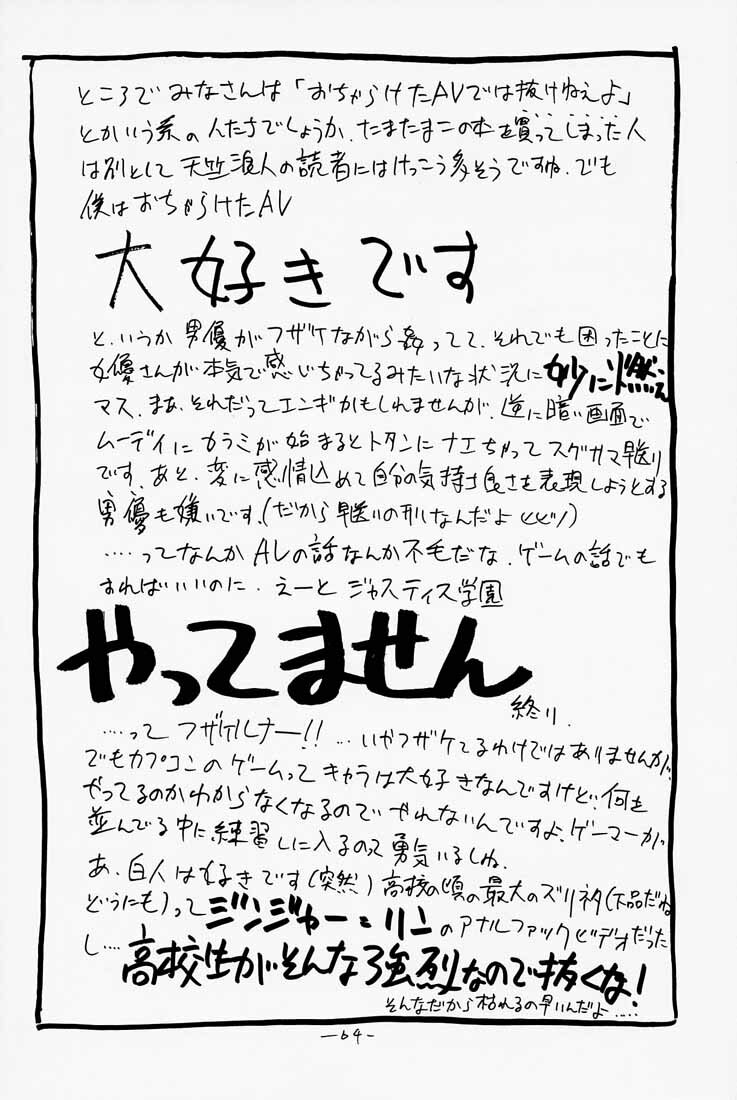 ところでみなさんは「おちゃらけたAVでは抜けねえよ」
とかいう系の人たちでしょうか。たまたまこの本を買ってしまった人
は別として天竺浪人の読者にはけっこう多そうですね。でも
僕はおちゃらけたAV
大好きです
というか男優がフザケながら姦ってて、それでも困ったことに
女優さんが本気で感じちゃってるみたいな状況に妙に燃え
マス。まあ、それだってエンギかもしれませんが、逆に暗い画面で
ムーディにカラミが始まるとトタンにナエちゃってスグサマ早送り
です。あと、変に感情込めて自分の気持ち良さを表現しようとする
男優も嫌いです。(だから早送りの刑なんだよ
‥‥ってなんかAVの話なんか不毛だな。ゲームの話でも
すればいいのに。えーと ジャスティス学園
やってません
終り.
‥‥って フザケルナー!! …いやフザケてるわけではありませんが、
でもカプコンのゲームって キャラは大好きなんですけど、何を
やってるのかわからなくなるので やれないんですよ。ゲーマーが
並んでる中に練習しに入るのって勇気いるしね。
あ、白人は好きです(突然)高校の頃の最大のズリネタ(下品だね
どうにも)って ジンジャー=リン のアナルファックビデオだった
し‥‥高校生がそんな強烈なので抜くな!
そんなだから枯れるの早いんだよ‥‥
—64-